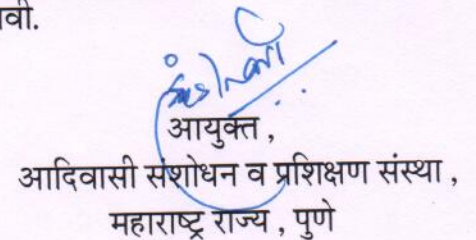 वी.
आयुक्त ,
आदिवासी संशोधन व प्रशिक्षण संस्था ,
महाराष्ट्र राज्य , पुणे